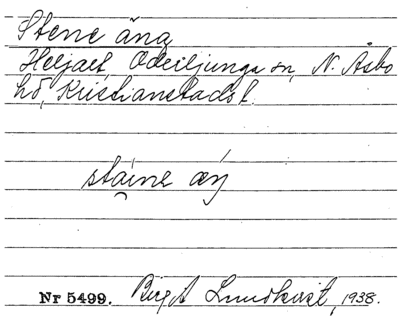 Stene äng
Heljalt, Ödeiljunga sn, N. Åsbo
hd, Kristianstads l.
stáine æŋ
Nr 5499. Birgit Lundkvist, 1938.